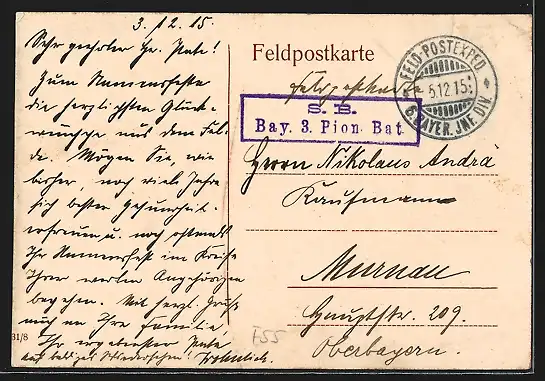 3. 12. 15.
Sehr geehrter Hr. Pate!
Zum Namensfeste
die herzlichsten Glück-
wünsche aus dem Fel-
de. Mögen Sie, wie
bisher, noch viele Jahre
sich bester Gesundheit
erfreuen u. noch oftmals
Ihr Namensfest im Kreise
Ihrer werten Angehörigen
begehen. Mit herzl. Gruß
auch an Ihre Familie,
Ihr ergebenster Pate
auf baldiges Wiedersehen!
31/8
Feldpostkarte
Feldpostkarte
FELD-POSTEXPED.
5.12.15
6. BAYER. INF. DIV.
S. B.
Bay. 3. Pion. Bat.
Herrn Nikolaus Andrä
Kaufmann
Murnau
Hauptstr. 209.
Oberbayern.
F55